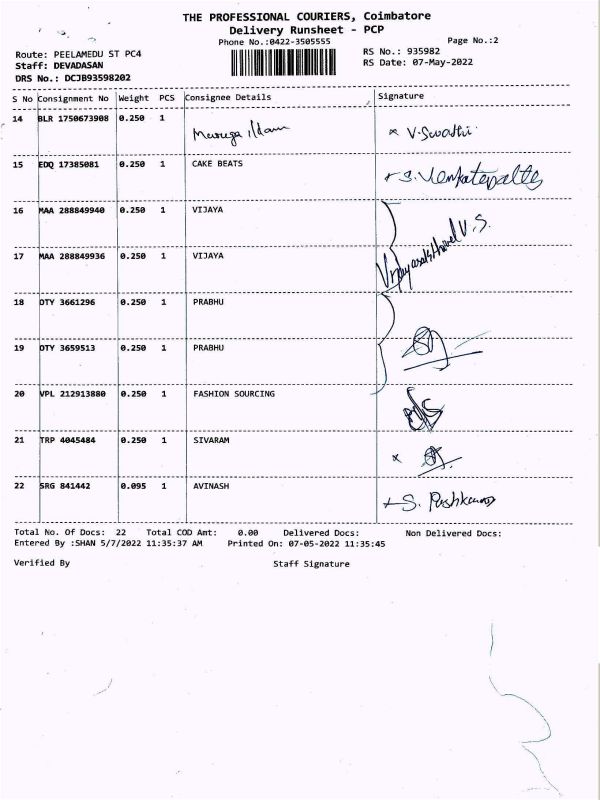 THE PROFESSIONAL COURIERS, Coimbatore
Delivery Runsheet - PCP
Phone No.:0422-3505555
Page No.:2
Route: PEELAMEDU ST PC4
RS No.: 935982
Staff: DEVADASAN
RS Date: 07-May-2022
DRS No.: DCJB93598202
S No Consignment No Weight PCS Consignee Details Signature
14 BLR 1750673908 0.250 1 V.Swathi
15 EDQ 17385081 0.250 1 CAKE BEATS
16 MAA 288849940 0.250 1 VIJAYA
17 MAA 288849936 0.250 1 VIJAYA
18 OTY 3661296 0.250 1 PRABHU
19 OTY 3659513 0.250 1 PRABHU
20 VPL 212913880 0.250 1 FASHION SOURCING
21 TRP 4045484 0.250 1 SIVARAM
22 SRG 841442 0.095 1 AVINASH
Total No. Of Docs: 22 Total COD Amt: 0.00 Delivered Docs: Non Delivered Docs:
Entered By :SHAN 5/7/2022 11:35:37 AM Printed On: 07-05-2022 11:35:45
Verified By Staff Signature